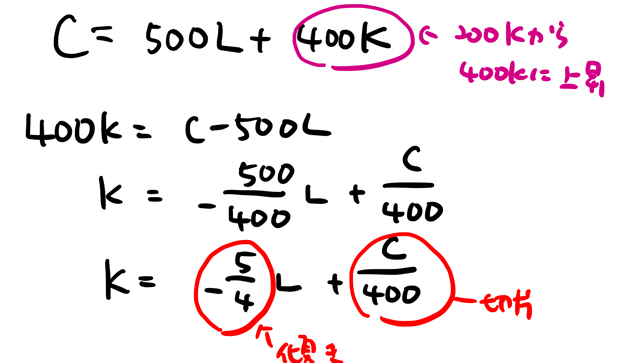 C = 500L + 400K ← 200Kから
400Kに上昇
400K = C - 500L
K = - 500/400 L + C/400
K = - 5/4 L + C/400 切片
傾き